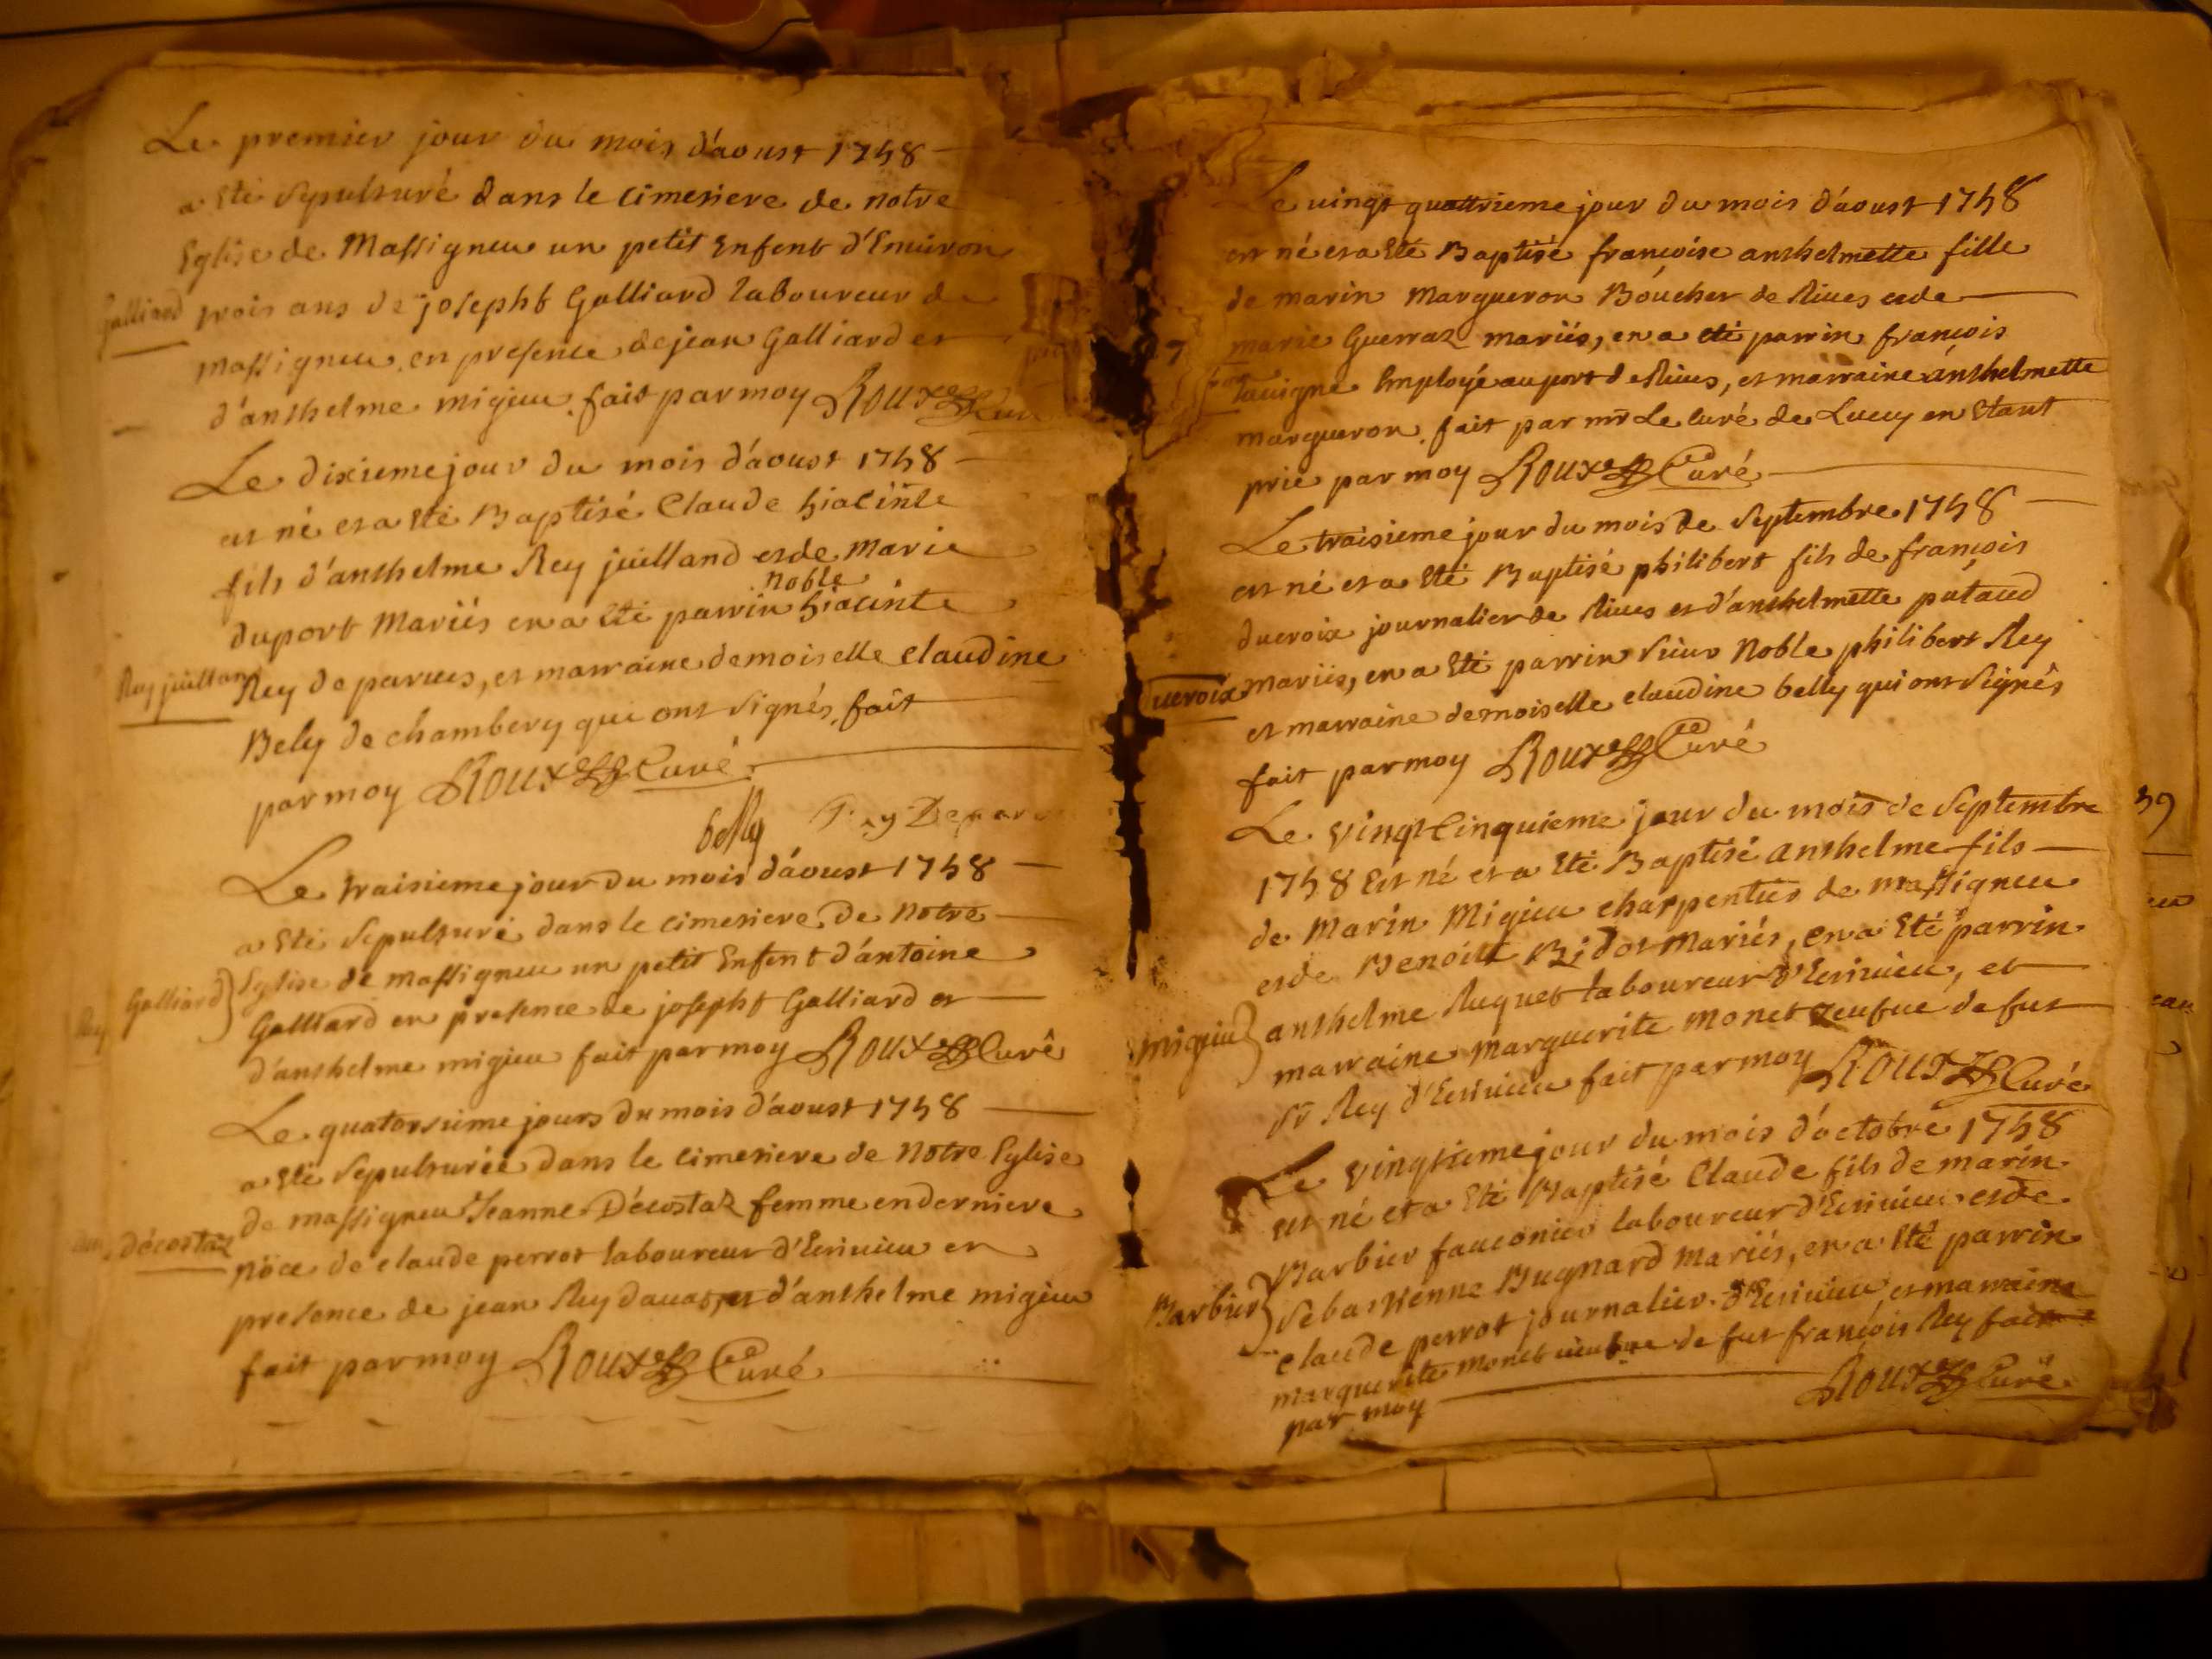 Le premier jour du mois d'aoust 1758
a Eté Sepulturé dans le cimetiere de notre
Eglise de Massigneu un petit Enfent d'Environ
Galliard
trois ans de josepht Galliard laboureur de
massigneu en presence de jean Galliard et
d'anthelme migieu. fait par moy Roux Curé
Le dixieme jour du mois d'aoust 1758
est né et a Eté Baptisé Claude hiacinte
fils d'anthelme Rey juilland et de Marie
duport Mariés en a Eté parrin noble hiacinte
Rey juilland
Rey de parves, et marraine demoiselle claudine
Bely de chambery qui ont signés, fait
par moy Roux Curé
belly Rey De parves
Le traisieme jour du mois d'aoust 1758
a Eté Sepulturé dans le cimetiere de Notre
Galliard
Eglise de massigneu un petit Enfent d'antoine
Galliard en presence de josepht Galliard et
d'anthelme migieu fait par moy Roux Curé
Le quatorsieme jours du mois d'aoust 1758
a Eté Sepulturée dans le cimetiere de Notre Eglise
de massigneu Jeanne Décostaz femme en derniere
décostaz
nôce de claude perrot laboureur d'Ecrivieu en
presence de jean Rey davat, et d'anthelme migieu
fait par moy Roux Curé
Le vingt quattrieme jour du mois d'aoust 1758
est né et a Eté Baptisé françoise anthelmette fille
de marin Margueron Boucher de Rives et de
marie Guerraz mariés, en a eté parrin françois
lavigne Employé au port de Rives, et marraine anthelmette
margueron. fait par mr Le curé de Lucey en Etant
prié par moy Roux Curé
Le traisieme jour du mois de Septembre 1758
est né et a Eté Baptisé philibert fils de françois
ducroix journalier de Rives et d'anthelmette pataud
Ducroix
mariés, en a Eté parrin sieur Noble philibert Rey
et marraine demoiselle claudine belly qui ont signés
fait par moy Roux Curé
Le vingt cinquieme jour du mois de Septembre
1758 Est né et a Eté Baptisé anthelme fils
de Marin Migieu charpentier de massigneu
et de Benoite Bidot mariés, en a Eté parrin
migieu
anthelme Ruquet laboureur d'Ecrivieu, et
marraine marguerite monet veufve de fut
sr Rey d'Ecrivieu fait par moy Roux Curé
Le vingtieme jour du mois d'octobre 1758
est né et a Eté Baptisé Claude fils de marin
Barbier fauconier laboureur d'Ecrivieu et de
Barbier
Sebastienne Bugnard Mariés, en a Eté parrin
claude perrot journalier d'Ecrivieu et marraine
marguerite monet veufve de fut françois Rey fait
par moy Roux Curé